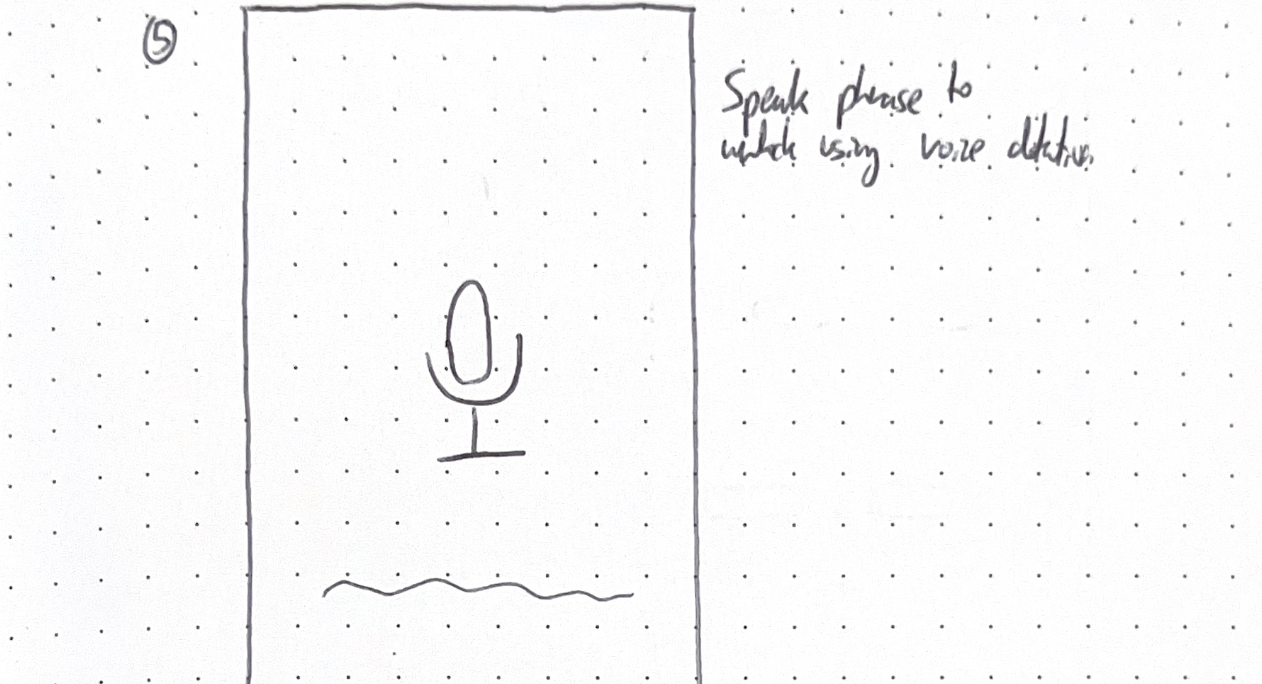 ⑤
Speak phrase to
unlock using voice dictation